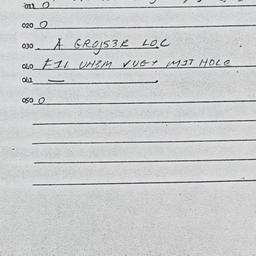 011 0
020 0
030 A GROJS3R LOC
040 FIL UNZM VUGT MIT HOLE
041 —
050 0